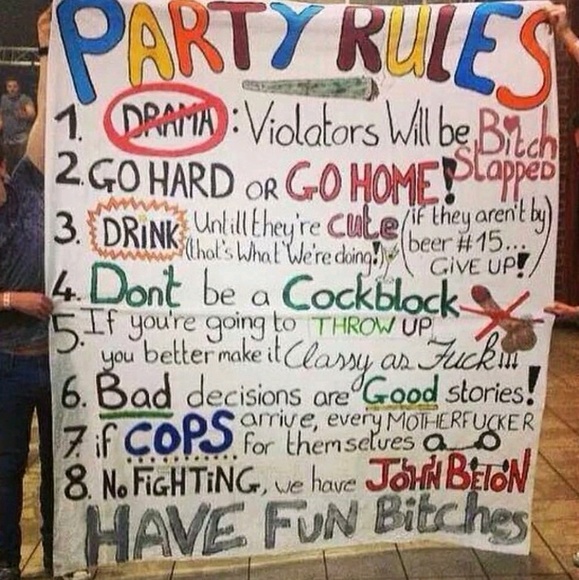 PARTY RULES
1. DRAMA : Violators Will be Bitch
Slapped
2. GO HARD OR GO HOME!
3. DRINK Untill they're cute (if they aren't by
(that's What We're doing!) beer #15...
GIVE UP!)
4. Dont be a Cockblock
5. If you're going to THROW UP
you better make it Classy as Fuck!!!
6. Bad decisions are Good stories!
7. if COPS arrive, every MOTHERFUCKER
for themselves
8. NO FIGHTING, we have JOHN BETON
HAVE FUN Bitches